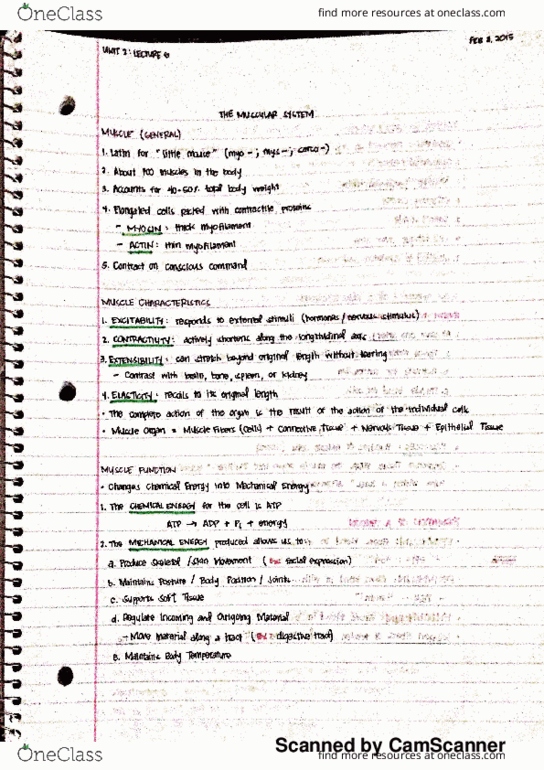 OneClass
find more resources at oneclass.com
FEB 2, 2015
UNIT 2: LECTURE 6
THE MUSCULAR SYSTEM
MUSCLE (GENERAL)
1. Latin for "little mouse" (myo-; mys-; sarco-)
2. About 700 muscles in the body
3. Accounts for 40-50% total body weight
4. Elongated cells packed with contractile proteins
- MYOSIN: thick myofilament
- ACTIN: thin myofilament
5. Contract on conscious command
MUSCLE CHARACTERISTICS
1. EXCITABILITY: responds to external stimuli (hormones / nervous stimulus)
2. CONTRACTILITY: actively shortens along the longitudinal axis
3. EXTENSIBILITY: can stretch beyond original length without tearing
- Contrast with brain, bone, spleen, or kidney
4. ELASTICITY: recoils to its original length
• The complete action of the organ is the result of the action of the individual cells
• Muscle Organ = Muscle Fibers (Cells) + Connective Tissue + Nervous Tissue + Epithelial Tissue
MUSCLE FUNCTION
• Changes Chemical Energy into Mechanical Energy
1. The CHEMICAL ENERGY for the cell is ATP
ATP → ADP + Pi + energy
2. The MECHANICAL ENERGY produced allows us to:
a. Produce Skeletal / Skin Movement ( facial expression)
b. Maintains Posture / Body Position / Joints
c. Supports Soft Tissue
d. Regulate Incoming and Outgoing Material
- Move material along a tract ( digestive tract)
e. Maintains Body Temperature
Scanned by CamScanner
OneClass
find more resources at oneclass.com